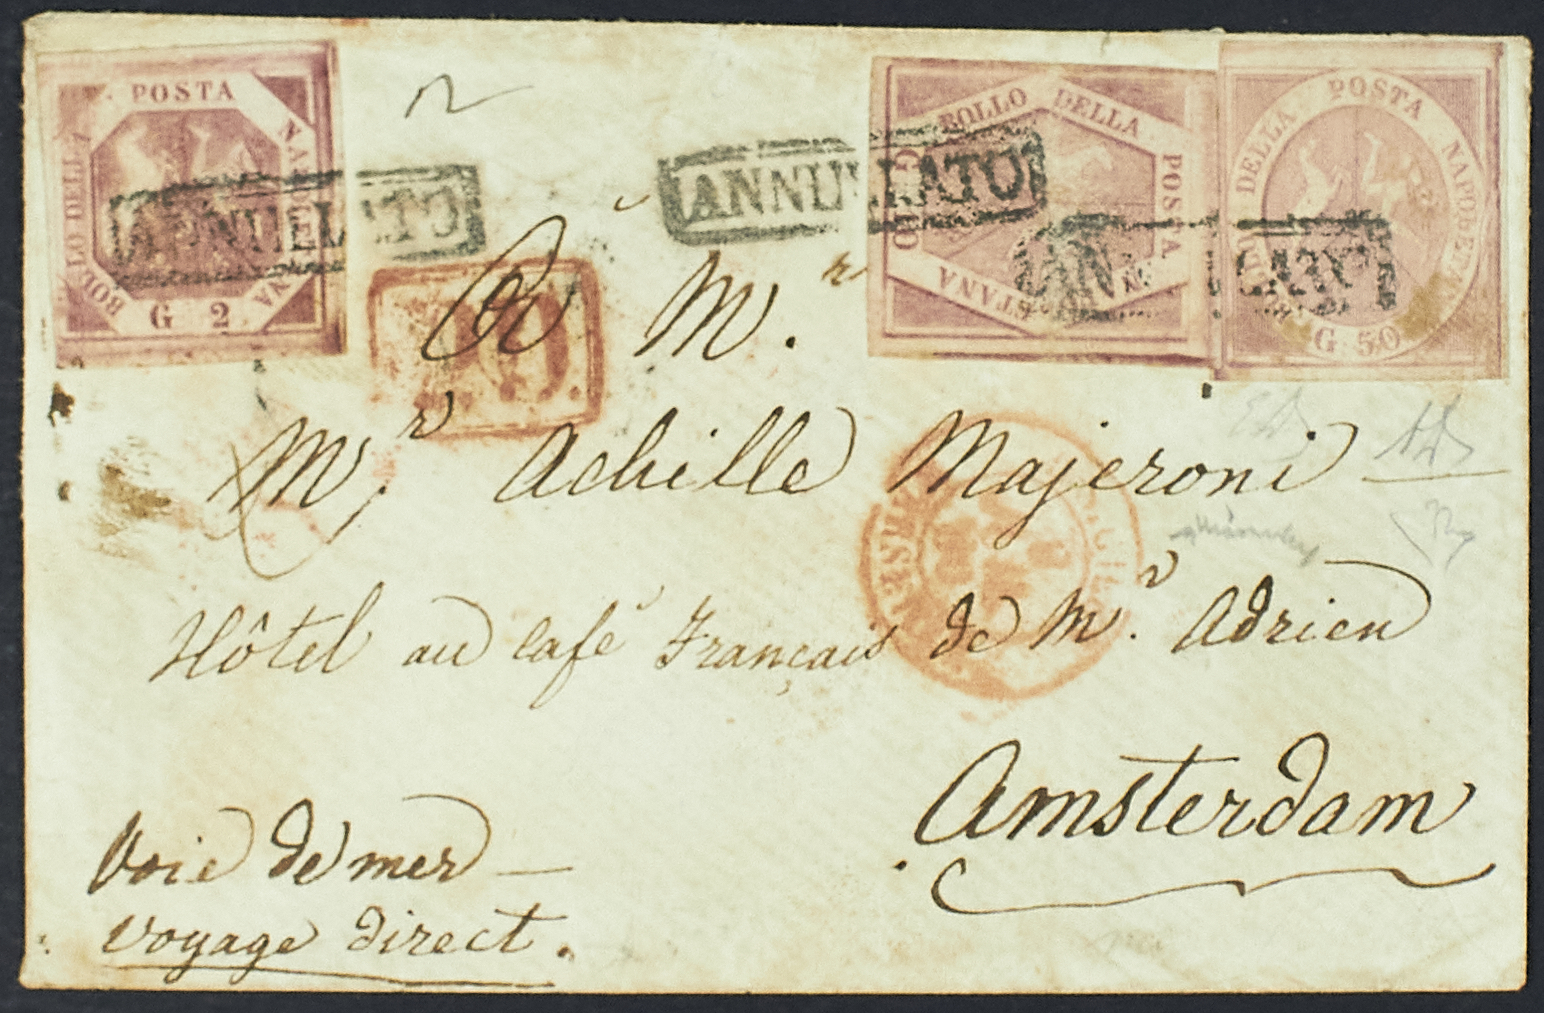 BOLLO DELLA POSTA NAPOLETANA
G 2
BOLLO DELLA POSTA NAPOLETANA
G
BOLLO DELLA POSTA NAPOLETANA
G 50
ANNULLATO
ANNULLATO
ANNULLATO
P.D.
A M.r
M.r Achille Majeroni
Hôtel au Café Français de M.r Adrien
Amsterdam
Voie de mer
voyage direct.